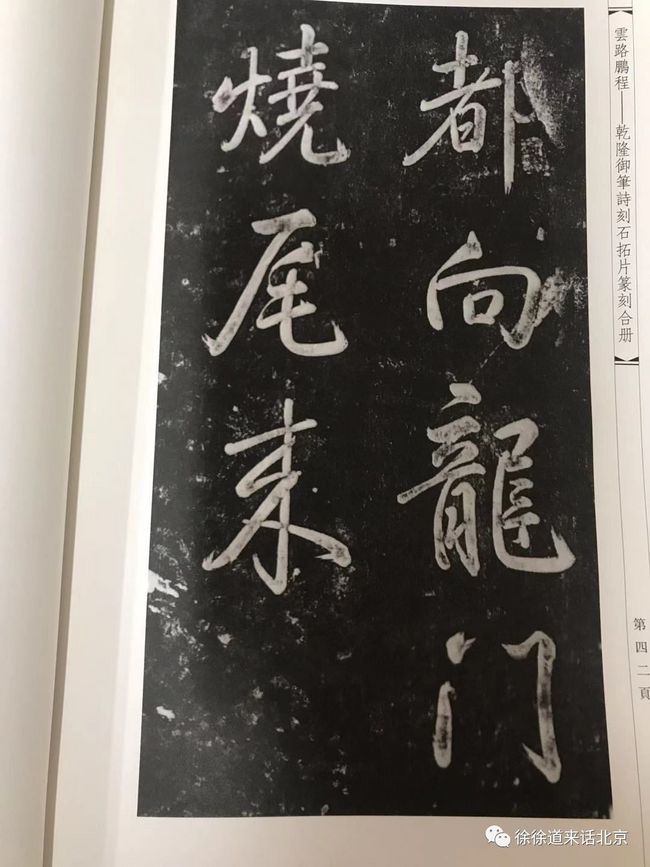 雲路鵬程——乾隆御筆詩刻石拓片篆刻合册
第四二頁
都向龍门
燒尾来
徐徐道来话北京